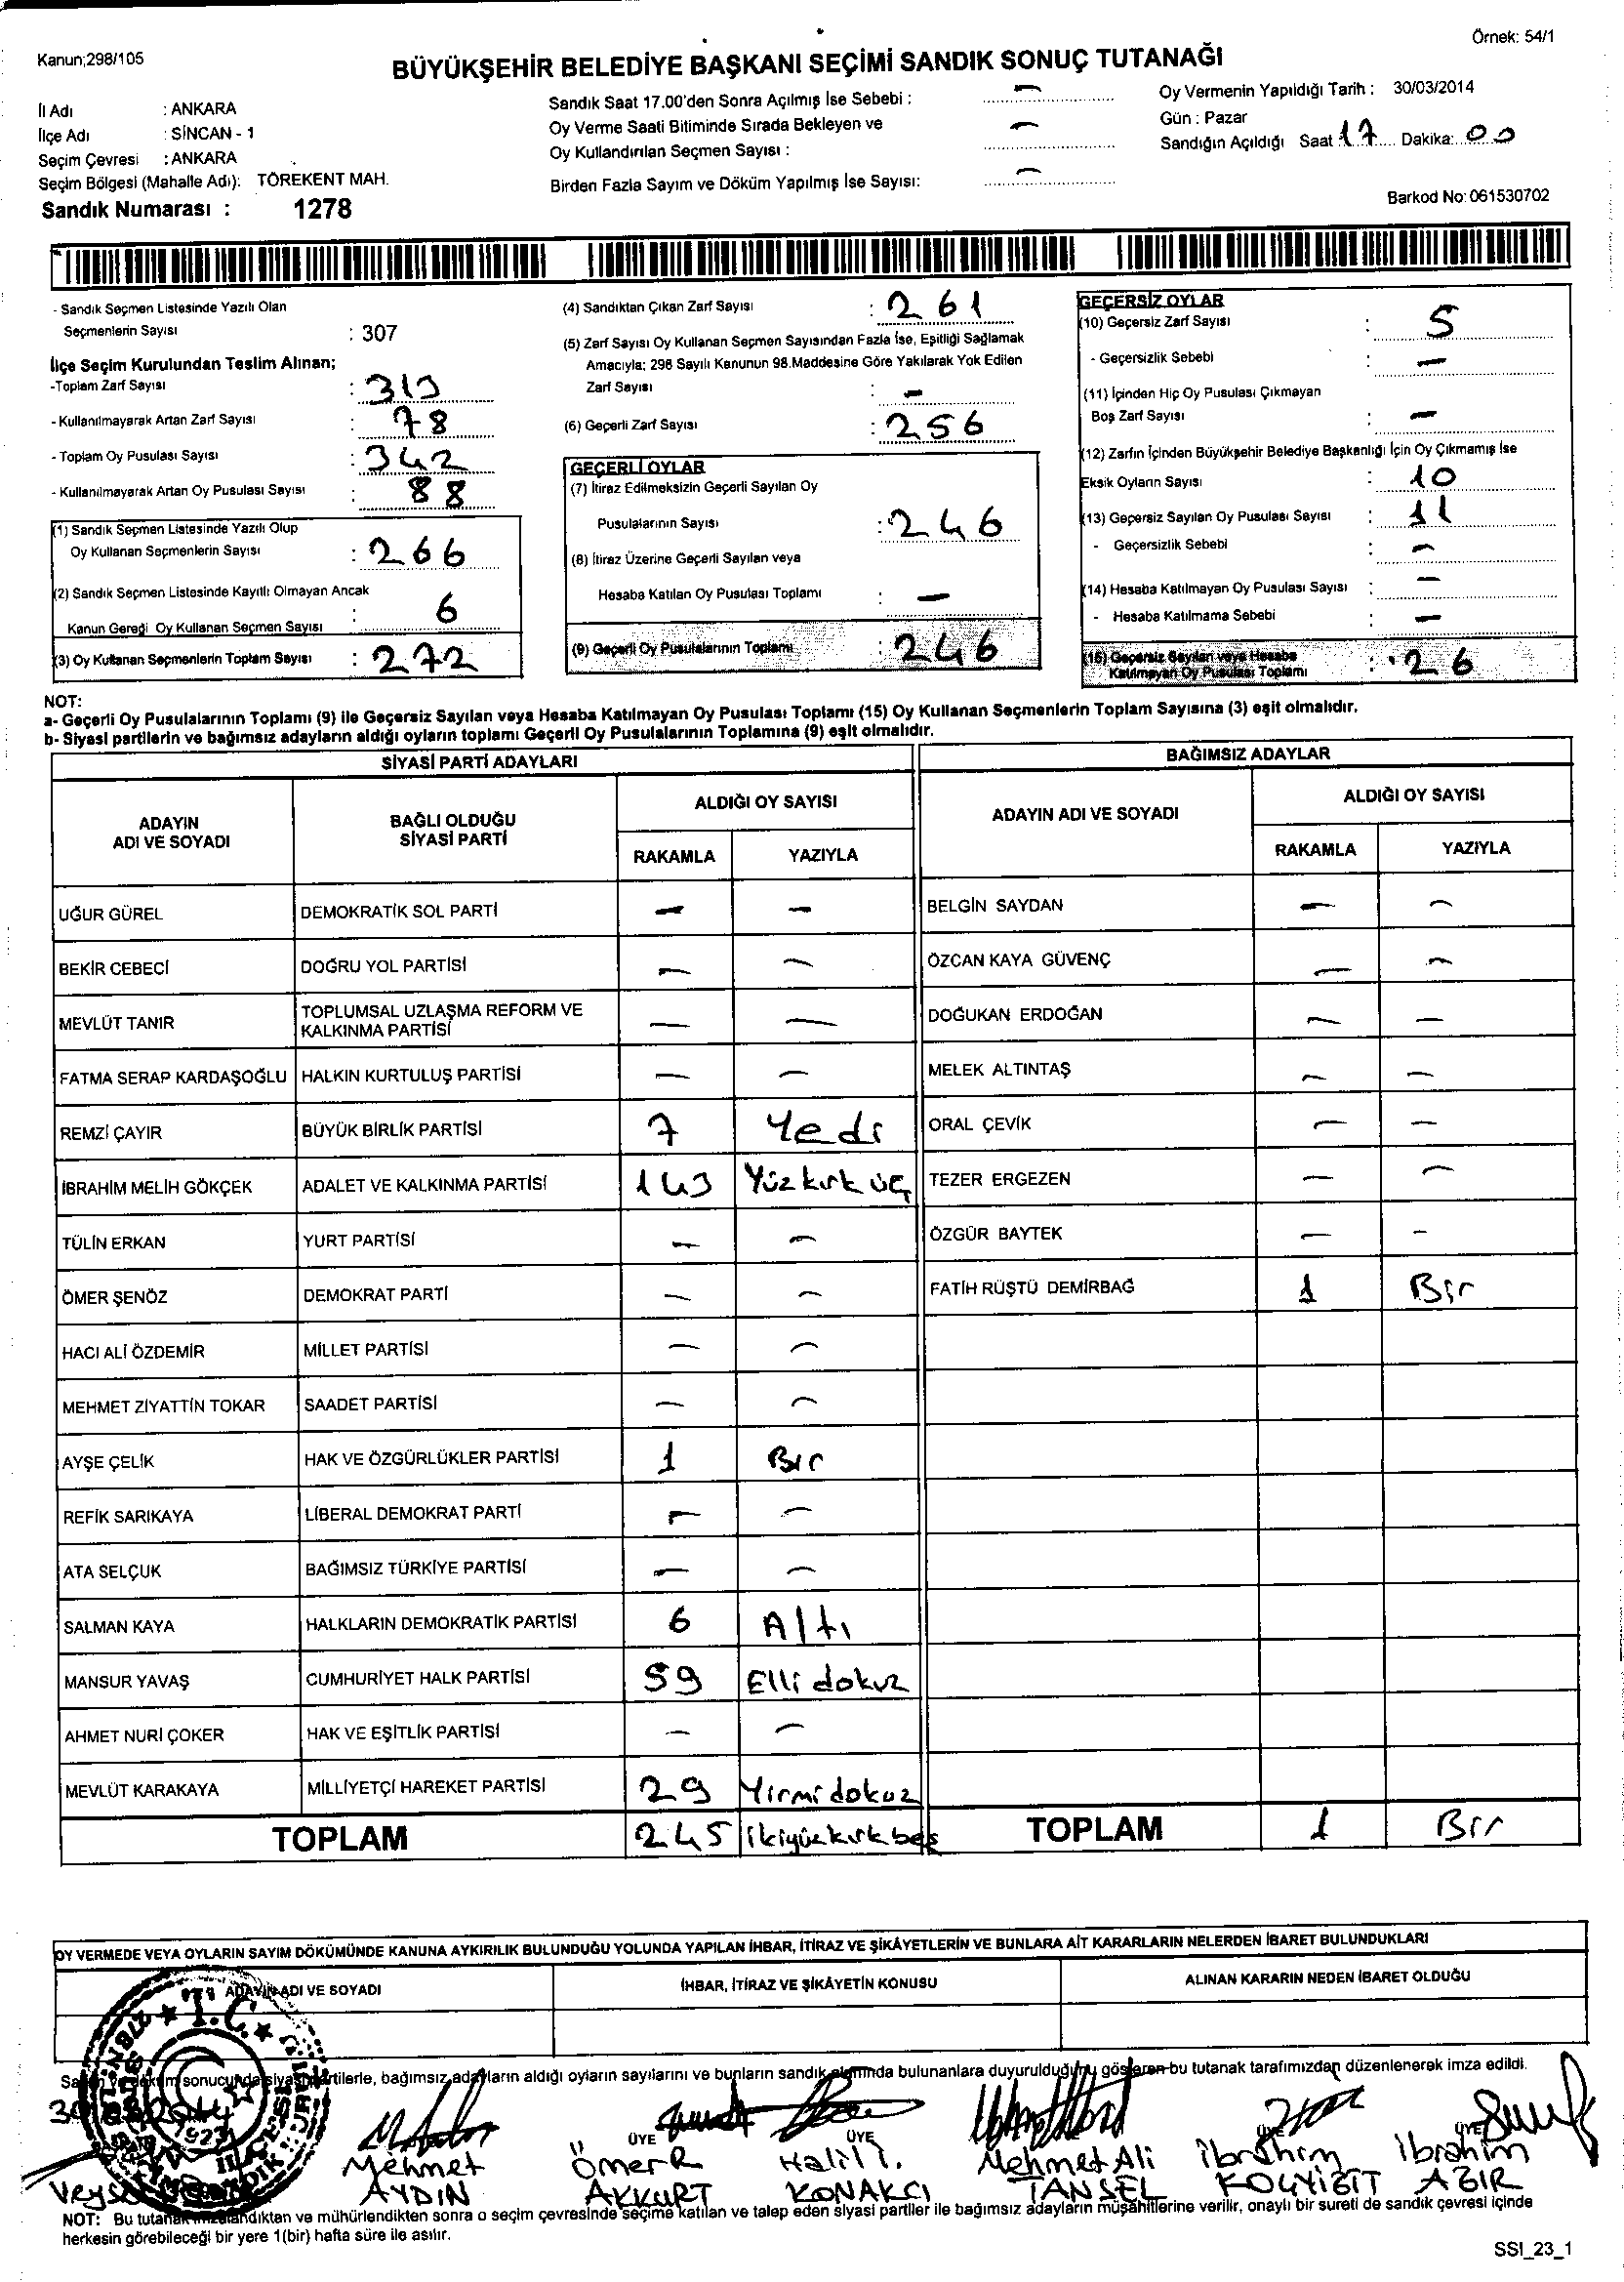 Örnek: 54/1
Kanun;298/105
BÜYÜKŞEHİR BELEDİYE BAŞKANI SEÇİMİ SANDIK SONUÇ TUTANAĞI
İl Adı : ANKARA
İlçe Adı : SİNCAN - 1
Seçim Çevresi : ANKARA
Seçim Bölgesi (Mahalle Adı): TÖREKENT MAH.
Sandık Numarası : 1278
Sandık Saat 17.00'den Sonra Açılmış İse Sebebi : –
Oy Verme Saati Bitiminde Sırada Bekleyen ve –
Oy Kullandırılan Seçmen Sayısı :
Birden Fazla Sayım ve Döküm Yapılmış İse Sayısı: –
Oy Vermenin Yapıldığı Tarih : 30/03/2014
Gün : Pazar
Sandığın Açıldığı Saat 17 Dakika: 00
Barkod No: 061530702
- Sandık Seçmen Listesinde Yazılı Olan
Seçmenlerin Sayısı : 307
İlçe Seçim Kurulundan Teslim Alınan;
-Toplam Zarf Sayısı : 313
- Kullanılmayarak Artan Zarf Sayısı : 78
- Toplam Oy Pusulası Sayısı : 342
- Kullanılmayarak Artan Oy Pusulası Sayısı : 88
(1) Sandık Seçmen Listesinde Yazılı Olup
Oy Kullanan Seçmenlerin Sayısı : 266
(2) Sandık Seçmen Listesinde Kayıtlı Olmayan Ancak
Kanun Gereği Oy Kullanan Seçmen Sayısı : 6
(3) Oy Kullanan Seçmenlerin Toplam Sayısı : 272
(4) Sandıktan Çıkan Zarf Sayısı : 261
(5) Zarf Sayısı Oy Kullanan Seçmen Sayısından Fazla İse, Eşitliği Sağlamak
Amacıyla; 298 Sayılı Kanunun 98.Maddesine Göre Yakılarak Yok Edilen
Zarf Sayısı : –
(6) Geçerli Zarf Sayısı : 256
GEÇERLİ OYLAR
(7) İtiraz Edilmeksizin Geçerli Sayılan Oy
Pusulalarının Sayısı : 246
(8) İtiraz Üzerine Geçerli Sayılan veya
Hesaba Katılan Oy Pusulası Toplamı : –
(9) Geçerli Oy Pusulalarının Toplamı : 246
GEÇERSİZ OYLAR
(10) Geçersiz Zarf Sayısı : 5
- Geçersizlik Sebebi : –
(11) İçinden Hiç Oy Pusulası Çıkmayan
Boş Zarf Sayısı : –
(12) Zarfın İçinden Büyükşehir Belediye Başkanlığı İçin Oy Çıkmamış İse
Eksik Oyların Sayısı : 10
(13) Geçersiz Sayılan Oy Pusulası Sayısı : 11
- Geçersizlik Sebebi : –
(14) Hesaba Katılmayan Oy Pusulası Sayısı : –
- Hesaba Katılmama Sebebi : –
(15) Geçersiz Sayılan veya Hesaba
Katılmayan Oy Pusulası Toplamı : 26
NOT:
a- Geçerli Oy Pusulalarının Toplamı (9) ile Geçersiz Sayılan veya Hesaba Katılmayan Oy Pusulası Toplamı (15) Oy Kullanan Seçmenlerin Toplam Sayısına (3) eşit olmalıdır.
b- Siyasi partilerin ve bağımsız adayların aldığı oyların toplamı Geçerli Oy Pusulalarının Toplamına (9) eşit olmalıdır.
SİYASİ PARTİ ADAYLARI
ADAYIN ADI VE SOYADI BAĞLI OLDUĞU SİYASİ PARTİ ALDIĞI OY SAYISI
RAKAMLA YAZIYLA
UĞUR GÜREL DEMOKRATİK SOL PARTİ – –
BEKİR CEBECİ DOĞRU YOL PARTİSİ – –
MEVLÜT TANIR TOPLUMSAL UZLAŞMA REFORM VE KALKINMA PARTİSİ – –
FATMA SERAP KARDAŞOĞLU HALKIN KURTULUŞ PARTİSİ – –
REMZİ ÇAYIR BÜYÜK BİRLİK PARTİSİ 7 Yedi
İBRAHİM MELİH GÖKÇEK ADALET VE KALKINMA PARTİSİ 143 Yüz kırk üç
TÜLİN ERKAN YURT PARTİSİ – –
ÖMER ŞENÖZ DEMOKRAT PARTİ – –
HACI ALİ ÖZDEMİR MİLLET PARTİSİ – –
MEHMET ZİYATTİN TOKAR SAADET PARTİSİ – –
AYŞE ÇELİK HAK VE ÖZGÜRLÜKLER PARTİSİ 1 Bir
REFİK SARIKAYA LİBERAL DEMOKRAT PARTİ – –
ATA SELÇUK BAĞIMSIZ TÜRKİYE PARTİSİ – –
SALMAN KAYA HALKLARIN DEMOKRATİK PARTİSİ 6 Altı
MANSUR YAVAŞ CUMHURİYET HALK PARTİSİ 59 Elli dokuz
AHMET NURİ ÇOKER HAK VE EŞİTLİK PARTİSİ – –
MEVLÜT KARAKAYA MİLLİYETÇİ HAREKET PARTİSİ 29 Yirmi dokuz
TOPLAM 245 İkiyüz kırk beş
BAĞIMSIZ ADAYLAR
ADAYIN ADI VE SOYADI ALDIĞI OY SAYISI
RAKAMLA YAZIYLA
BELGİN SAYDAN – –
ÖZCAN KAYA GÜVENÇ – –
DOĞUKAN ERDOĞAN – –
MELEK ALTINTAŞ – –
ORAL ÇEVİK – –
TEZER ERGEZEN – –
ÖZGÜR BAYTEK – –
FATİH RÜŞTÜ DEMİRBAĞ 1 Bir
TOPLAM 1 Bir
OY VERMEDE VEYA OYLARIN SAYIM DÖKÜMÜNDE KANUNA AYKIRILIK BULUNDUĞU YOLUNDA YAPILAN İHBAR, İTİRAZ VE ŞİKÂYETLERİN VE BUNLARA AİT KARARLARIN NELERDEN İBARET BULUNDUKLARI
ADAYIN ADI VE SOYADI İHBAR, İTİRAZ VE ŞİKÂYETİN KONUSU ALINAN KARARIN NEDEN İBARET OLDUĞU
sonucunda siyasi partilerle, bağımsız adayların aldığı oyların sayılarını ve bunların sandık alanında bulunanlara duyurulduğunu gösteren bu tutanak tarafımızdan düzenlenerek imza edildi.
T.C.
1923
ÜYE ÜYE ÜYE ÜYE
Mehmet AYDIN
Ömer R AKKURT
Halil İ. KONAKÇI
Mehmet Ali TANSEL
İbrahim KOÇYİĞİT
İbrahim AĞIR
NOT: Bu tutanak imzalandıktan ve mühürlendikten sonra o seçim çevresinde seçime katılan ve talep eden siyasi partiler ile bağımsız adayların müşahitlerine verilir, onaylı bir sureti de sandık çevresi içinde
herkesin görebileceği bir yere 1(bir) hafta süre ile asılır.
SSI_23_1